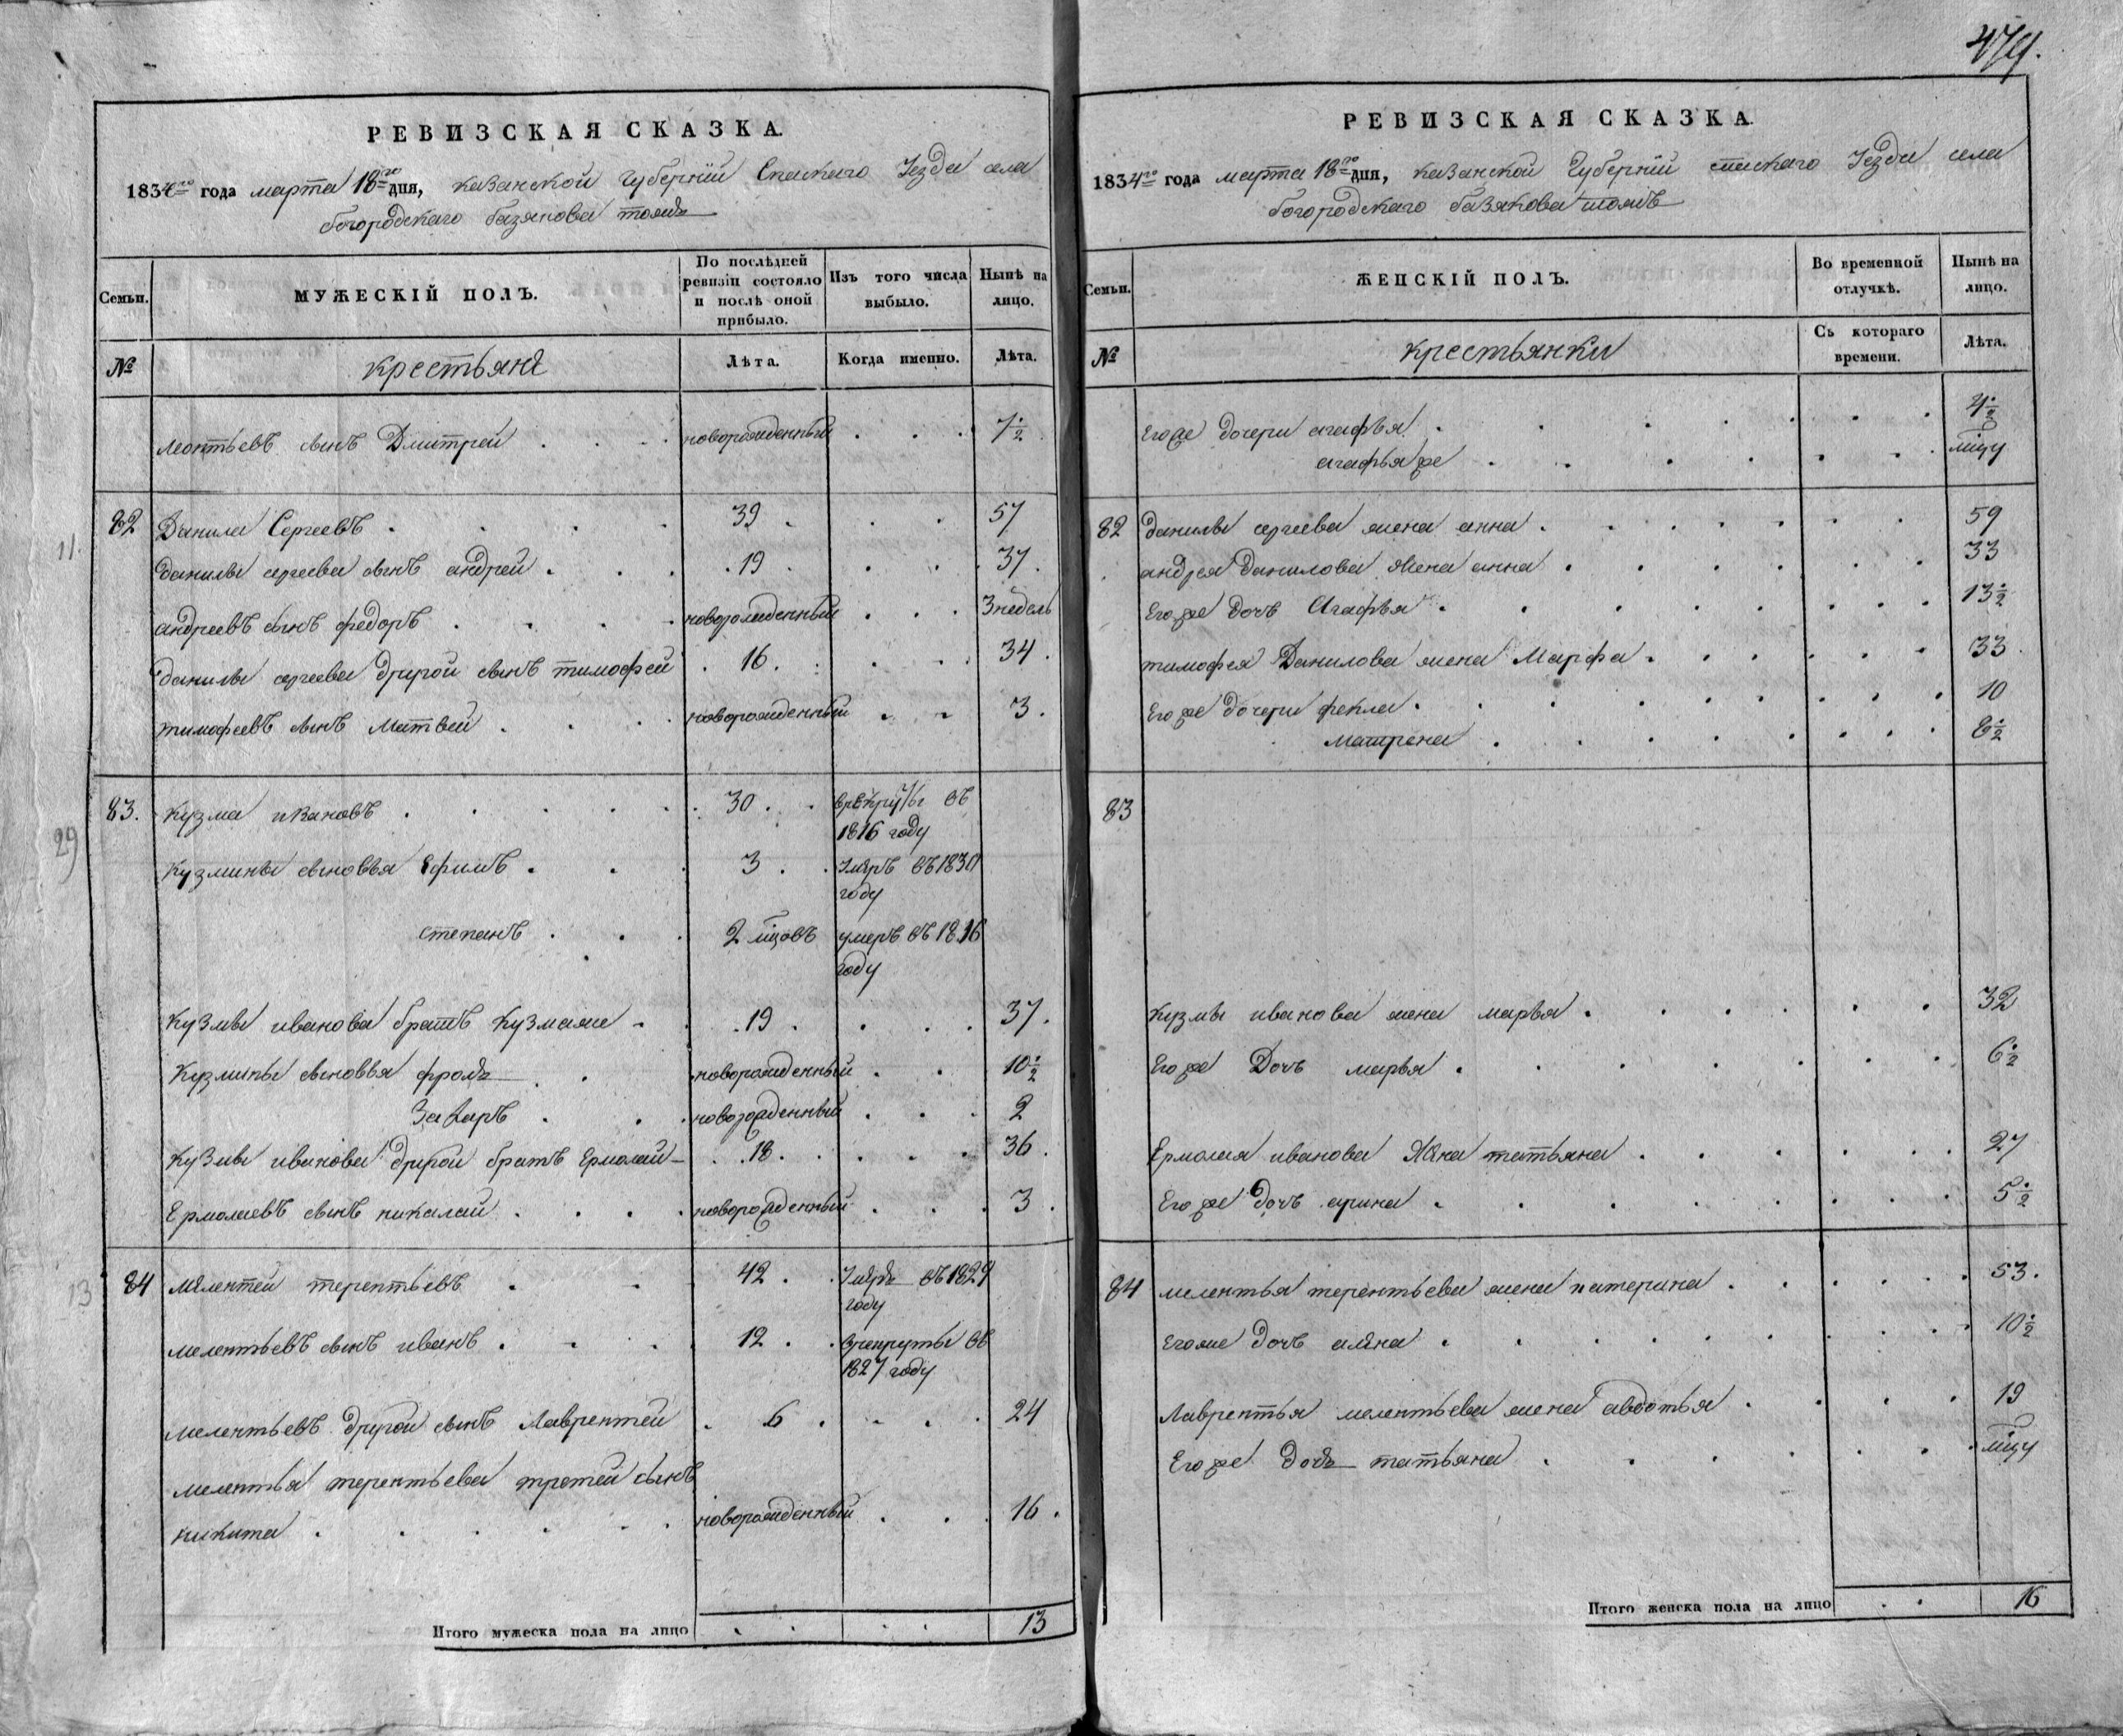 479.
РЕВИЗСКАЯ СКАЗКА.
1834го года марта 18го дня, казанской Губерніи Спаскаго Уезда села
богородскаго базякова тожъ
Семьи. МУЖЕСКІЙ ПОЛЪ. По послѣдней ревизіи состояло и послѣ оной прибыло. Изъ того числа выбыло. Нынѣ на лицо.
№ крестьяне Лѣта. Когда именно. Лѣта.
леонтьевъ сынъ Дмитрей новорожденный 7½
82 Данила Сергеевъ 39 57
данилы сергеева сынъ андрей 19 37
андреевъ сынъ федоръ новорожденный 3 недель
данилы сергеева другой сынъ тимофей 16 34
тимофеевъ сынъ матвей новорожденный 3
11.
83. кузма ивановъ 30 врекруты въ
1816 году
29
кузмины сыновья Ефимъ 3 умеръ въ 1830
году
степанъ 2 мцовъ умеръ въ 1816
году
кузмы иванова братъ кузмаже 19 37
кузмины сыновья фролъ новорожденный 10½
Захаръ новорожденный 2
кузмы иванова другой братъ Ермолай 18 36
Ермолаевъ сынъ никалай новорожденный 3
13
84 мелентей терентьевъ 42 умеръ въ 1829
году
мелентьевъ сынъ иванъ 12 врекруты въ
1827 году
мелентьевъ другой сынъ Лаврентей 6 24
мелентья терентьева третей сынъ
никита новорожденный 16
Итого мужеска пола на лицо 13
РЕВИЗСКАЯ СКАЗКА
1834го года марта 18го дня, казанской Губерніи спаскаго Уезда села
богородскаго базякова тожъ
Семьи. ЖЕНСКІЙ ПОЛЪ. Во временной отлучкѣ. Нынѣ на лицо.
№ крестьянки Съ котораго времени. Лѣта.
Егоже дочери агафья 4½
агафьяже мцу
82 данилы сергеева жена анна 59
андрея данилова жена анна 33
Егоже дочь Агафья 13½
тимофея Данилова жена Марфа 33
Егоже дочери фекла 10
матрена 6½
83
кузмы иванова жена марья 32
Егоже Дочь марья 6½
Ермолая иванова Жена татьяна 27
Егоже дочь арина 5½
84 мелентья терентьева жена катерина 53.
Егоже дочь алена 10½
Лаврентья мелентьева жена авдотья 19
Егоже дочь татьяна мцу
Итого женска пола на лицо 16